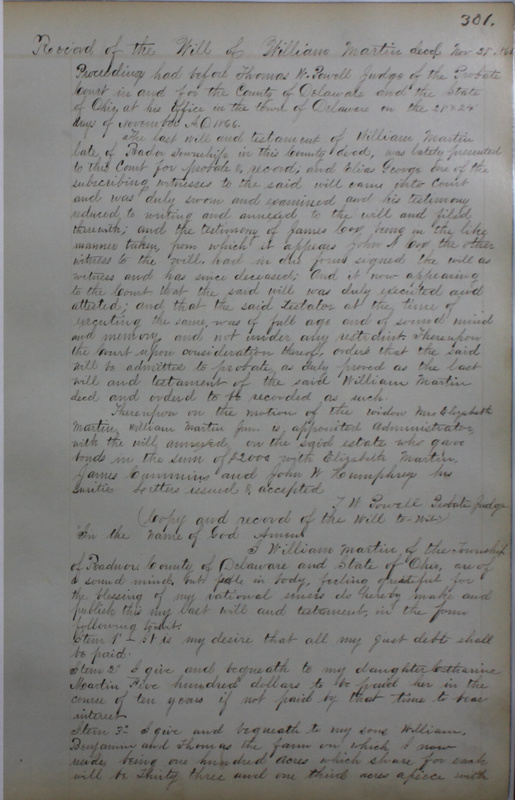 301.
Record of the Will of William Martin decd Nov 28. 1866
Proceedings had before Thomas W. Powell Judge of the Probate
Court in and for the County of Delaware and the State
of Ohio, at his office in the town of Delaware on the
days of November A.D. 1866.
The last will and testament of William Martin
late of Radnor Township in this County decd, was lately presented
to this Court for probate & record; and Elias George one of the
subscribing witnesses to the said will came into Court
and was duly sworn and examined and his testimony
reduced to writing and annexed to the will and filed
therewith; and the testimony of James Cox being in the like
manner taken, from which it appears John A Cox the other
witness to the will had in due form signed the will as
witness and has since deceased; And it now appearing
to the Court that the said will was duly executed and
attested; and that the said Testator at the time of
executing the same, was of full age and of sound mind
and memory and not under any restraint. Thereupon
the Court upon consideration thereof, orders that the said
will be admitted to probate, as duly proved as the last
will and testament of the said William Martin
decd and orderd to be recorded as such.
Thereupon on the motion of the widow Mrs Elizabeth
Martin, William Martin Jun. is, appointed Administrator,
with the will, annexed, on the said estate who gave
bonds in the sum of $2000 with Elizabeth Martin,
James Cummins and John W. Humphreys his
Sureties Letters issued & accepted
T W Powell Probate Judge
(Copy and record of the Will to-wit)
"In the Name of God Amen
I William Martin of the Township
of Radnor County of Delaware and State of Ohio, are of
a sound mind, but feeble in body, feeling grateful for
the blessing of my rational senses do hereby make and
publish this my last will and testament, in the form
following towit:
Item 1st - It is my desire that all my just debts shall
be paid.
Item 2d I give and bequeath to my daughter Catharine
Martin Five hundred dollars to be paid her in the
course of ten years if not paid by that time to bear
interest
Item 3d I give and bequeath to my sons William,
Benjamin and Thomas the farm on which I now
reside being one hundred acres which share for each
will be thirty three and one third acres apiece with